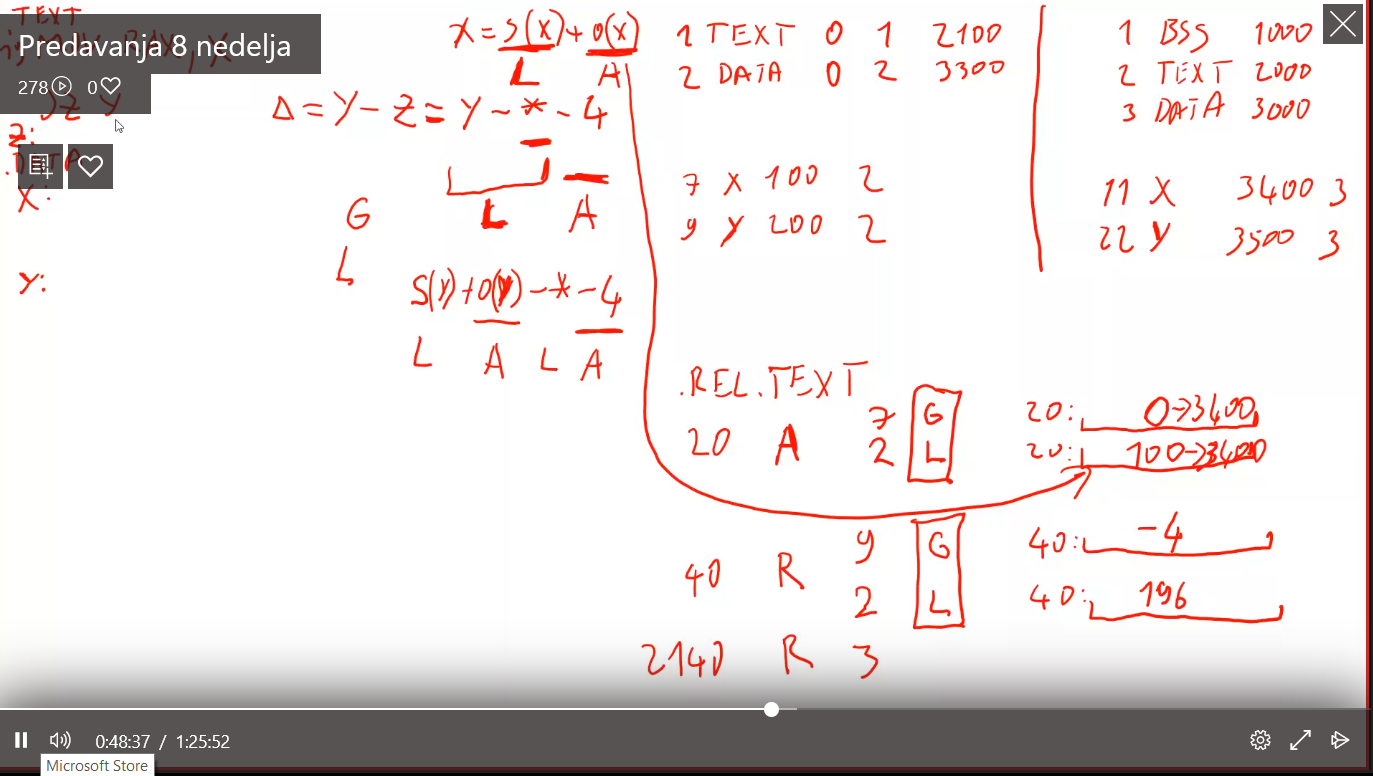 TEXT
Predavanja 8 nedelja
278 0
JZ Y
Z:
X:
Y:
X = S(X) + O(X)
L A
Δ = Y - Z = Y - * - 4
L A
G
L
S(Y) + O(Y) - * - 4
L A L A
1 TEXT 0 1 2100
2 DATA 0 2 3300
7 X 100 2
9 Y 200 2
1 BSS 1000
2 TEXT 2000
3 DATA 3000
11 X 3400 3
22 Y 3500 3
.REL.TEXT
7 G
20 A 2 L
20: 0→3400
20: 100→3400
9 G
40 R
2 L
40: -4
40: 196
2140 R 3
0:48:37 / 1:25:52
Microsoft Store